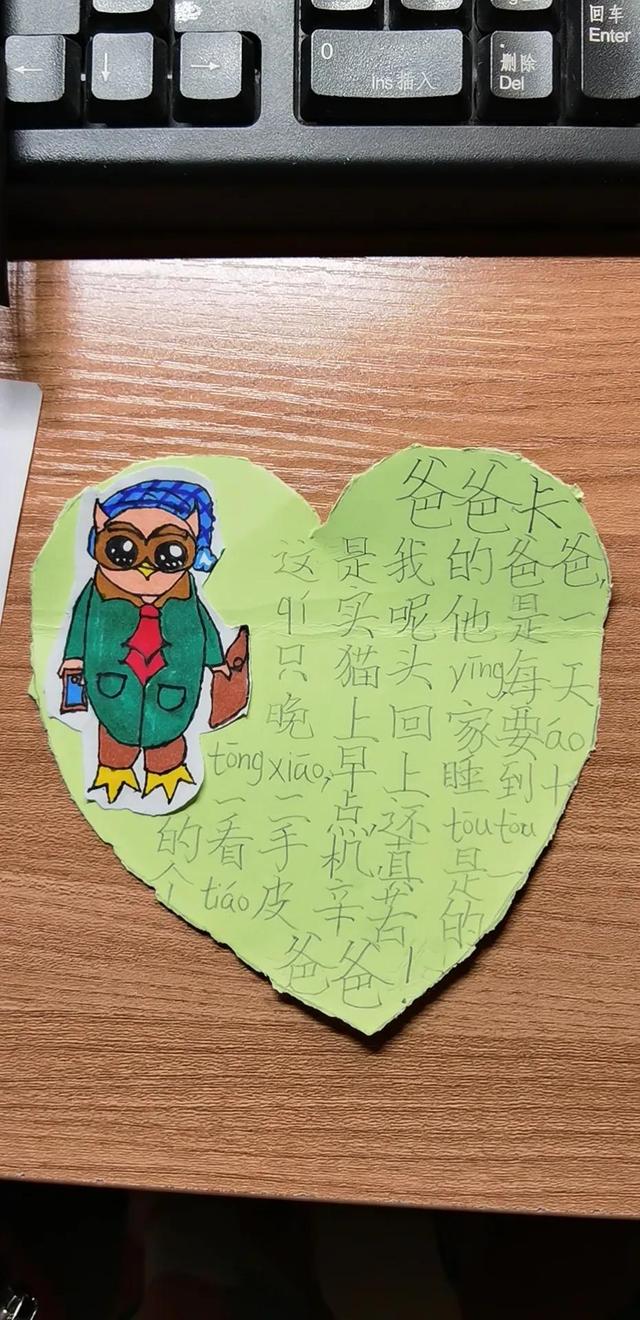 ←
↓
→
0
Ins 插入
.
删除
Del
回车
Enter
爸爸卡
这是我的爸爸,
qí实呢他是一
只猫头yīng每天
晚上回家要áo
tōngxiāo,早上睡到十
一二点,还tōutōu
的看手机真是一
个tiáo皮辛苦的
爸爸!